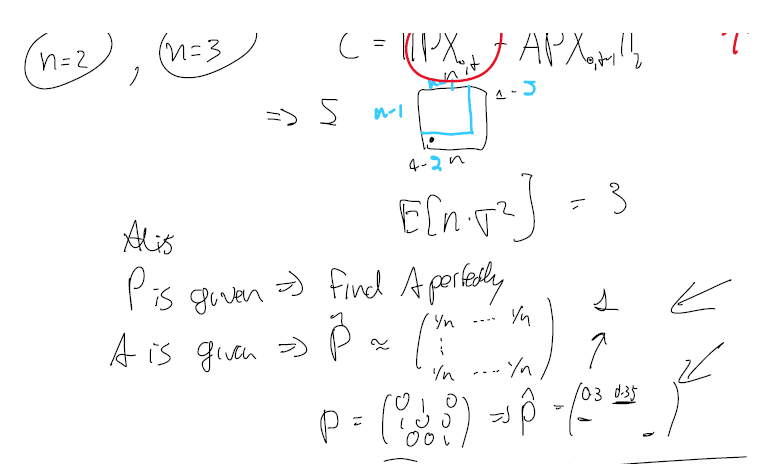 n=2 , n=3 C = ||PX₀,t - APX₀,t-1||₂
n-1 n
=> 5 n-1 1-3
4-2 n
E[n·σ²] = 3
A is
P is given => Find A perfectly
A is given => P̂ ≈ (1/n .... 1/n 1
⋮
1/n .... 1/n)
P = (0 1 0
1 0 0
0 0 1) => P̂ = (0.3 0.35
- -)